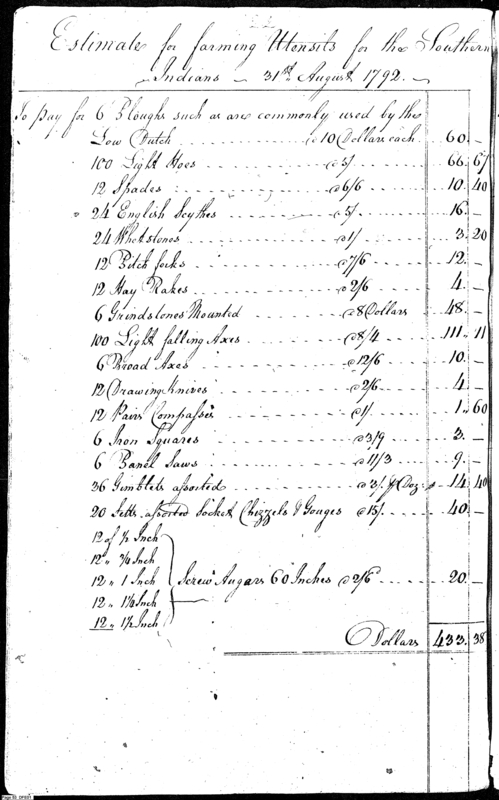 Estimate for farming Utensils for the Southern
Indians – 31st August 1792.
To pay for 6 Ploughs such as are commonly used by the
Low Dutch @ 10 Dollars each 60. –
100 Light Hoes @ 5/ 66. 67
12 Spades @ 6/6 10. 40
24 English Scythes @ 5/ 16. –
24 Whetstones @ 1/ 3. 20
12 Pitch forks @ 7/6 12. –
12 Hay Rakes @ 2/6 4. –
6 Grindstones Mounted @ 8 Dollars 48. –
100 Light falling Axes @ 8/4 111. 11
6 Broad Axes @ 12/6 10. –
12 Drawing Knives @ 2/6 4. –
12 Pairs Compasses @ 1/ 1. 60
6 Iron Squares @ 3/9 3. –
6 Panel Saws @ 11/3 9. –
36 Gimblets assorted @ 3/ ⅌ Doz. 14. 40
20 Setts assorted Socket Chizzels & Gouges @ 15/ 40. –
12 of ½ Inch
12 " ¾ Inch
12 " 1 Inch Screw Augars 60 Inches @ 2/6 20. –
12 " 1¼ Inch
12 " 1½ Inch
Dollars 433. 38